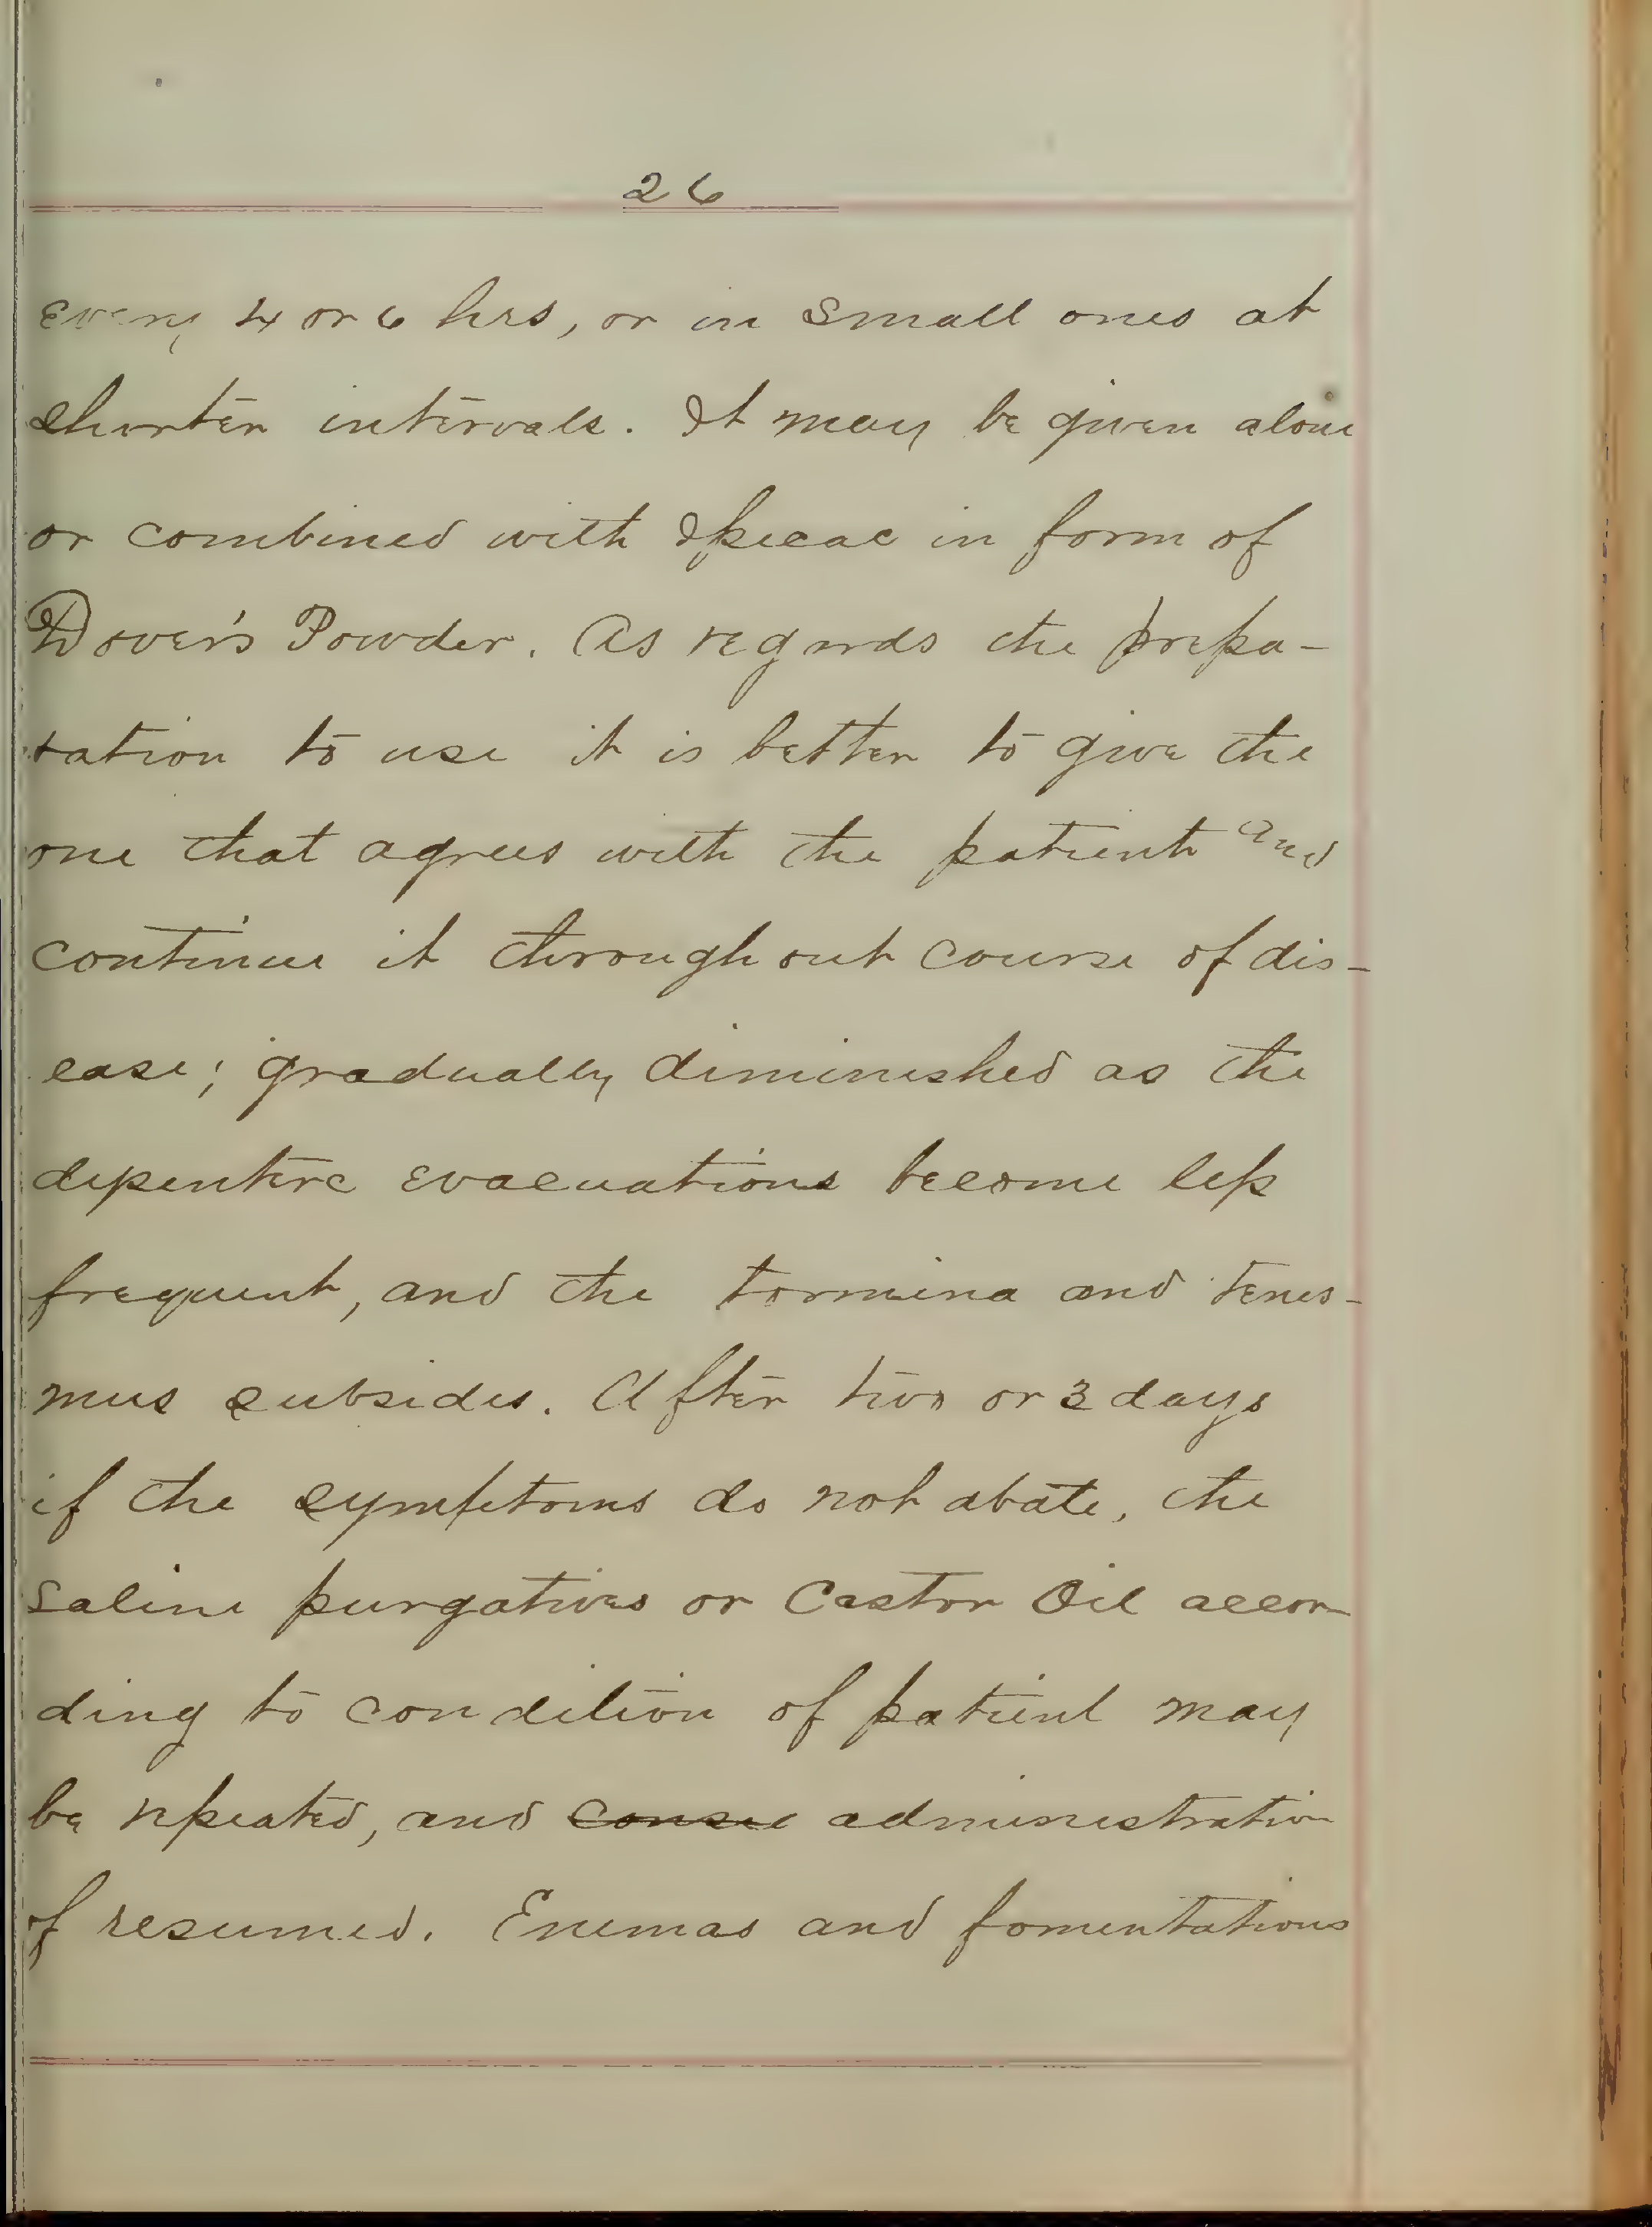 26
every 4 or 6 hrs, or in small ones at
shorter intervals. It may be given alone
or combined with Ipecac in form of
Dover's Powder. As regards the prepa-
ration to use it is better to give the
one that agrees with the patient and
continue it throughout course of dis-
ease; gradually diminished as the
dysenteric evacuations become less
frequent, and the tormina and tenes-
mus subsides. After two or 3 days
if the symptoms do not abate, the
saline purgatives or Castor Oil accor-
ding to condition of patient may
be repeated, and consec administration
of resumed. Enemas and fomentations